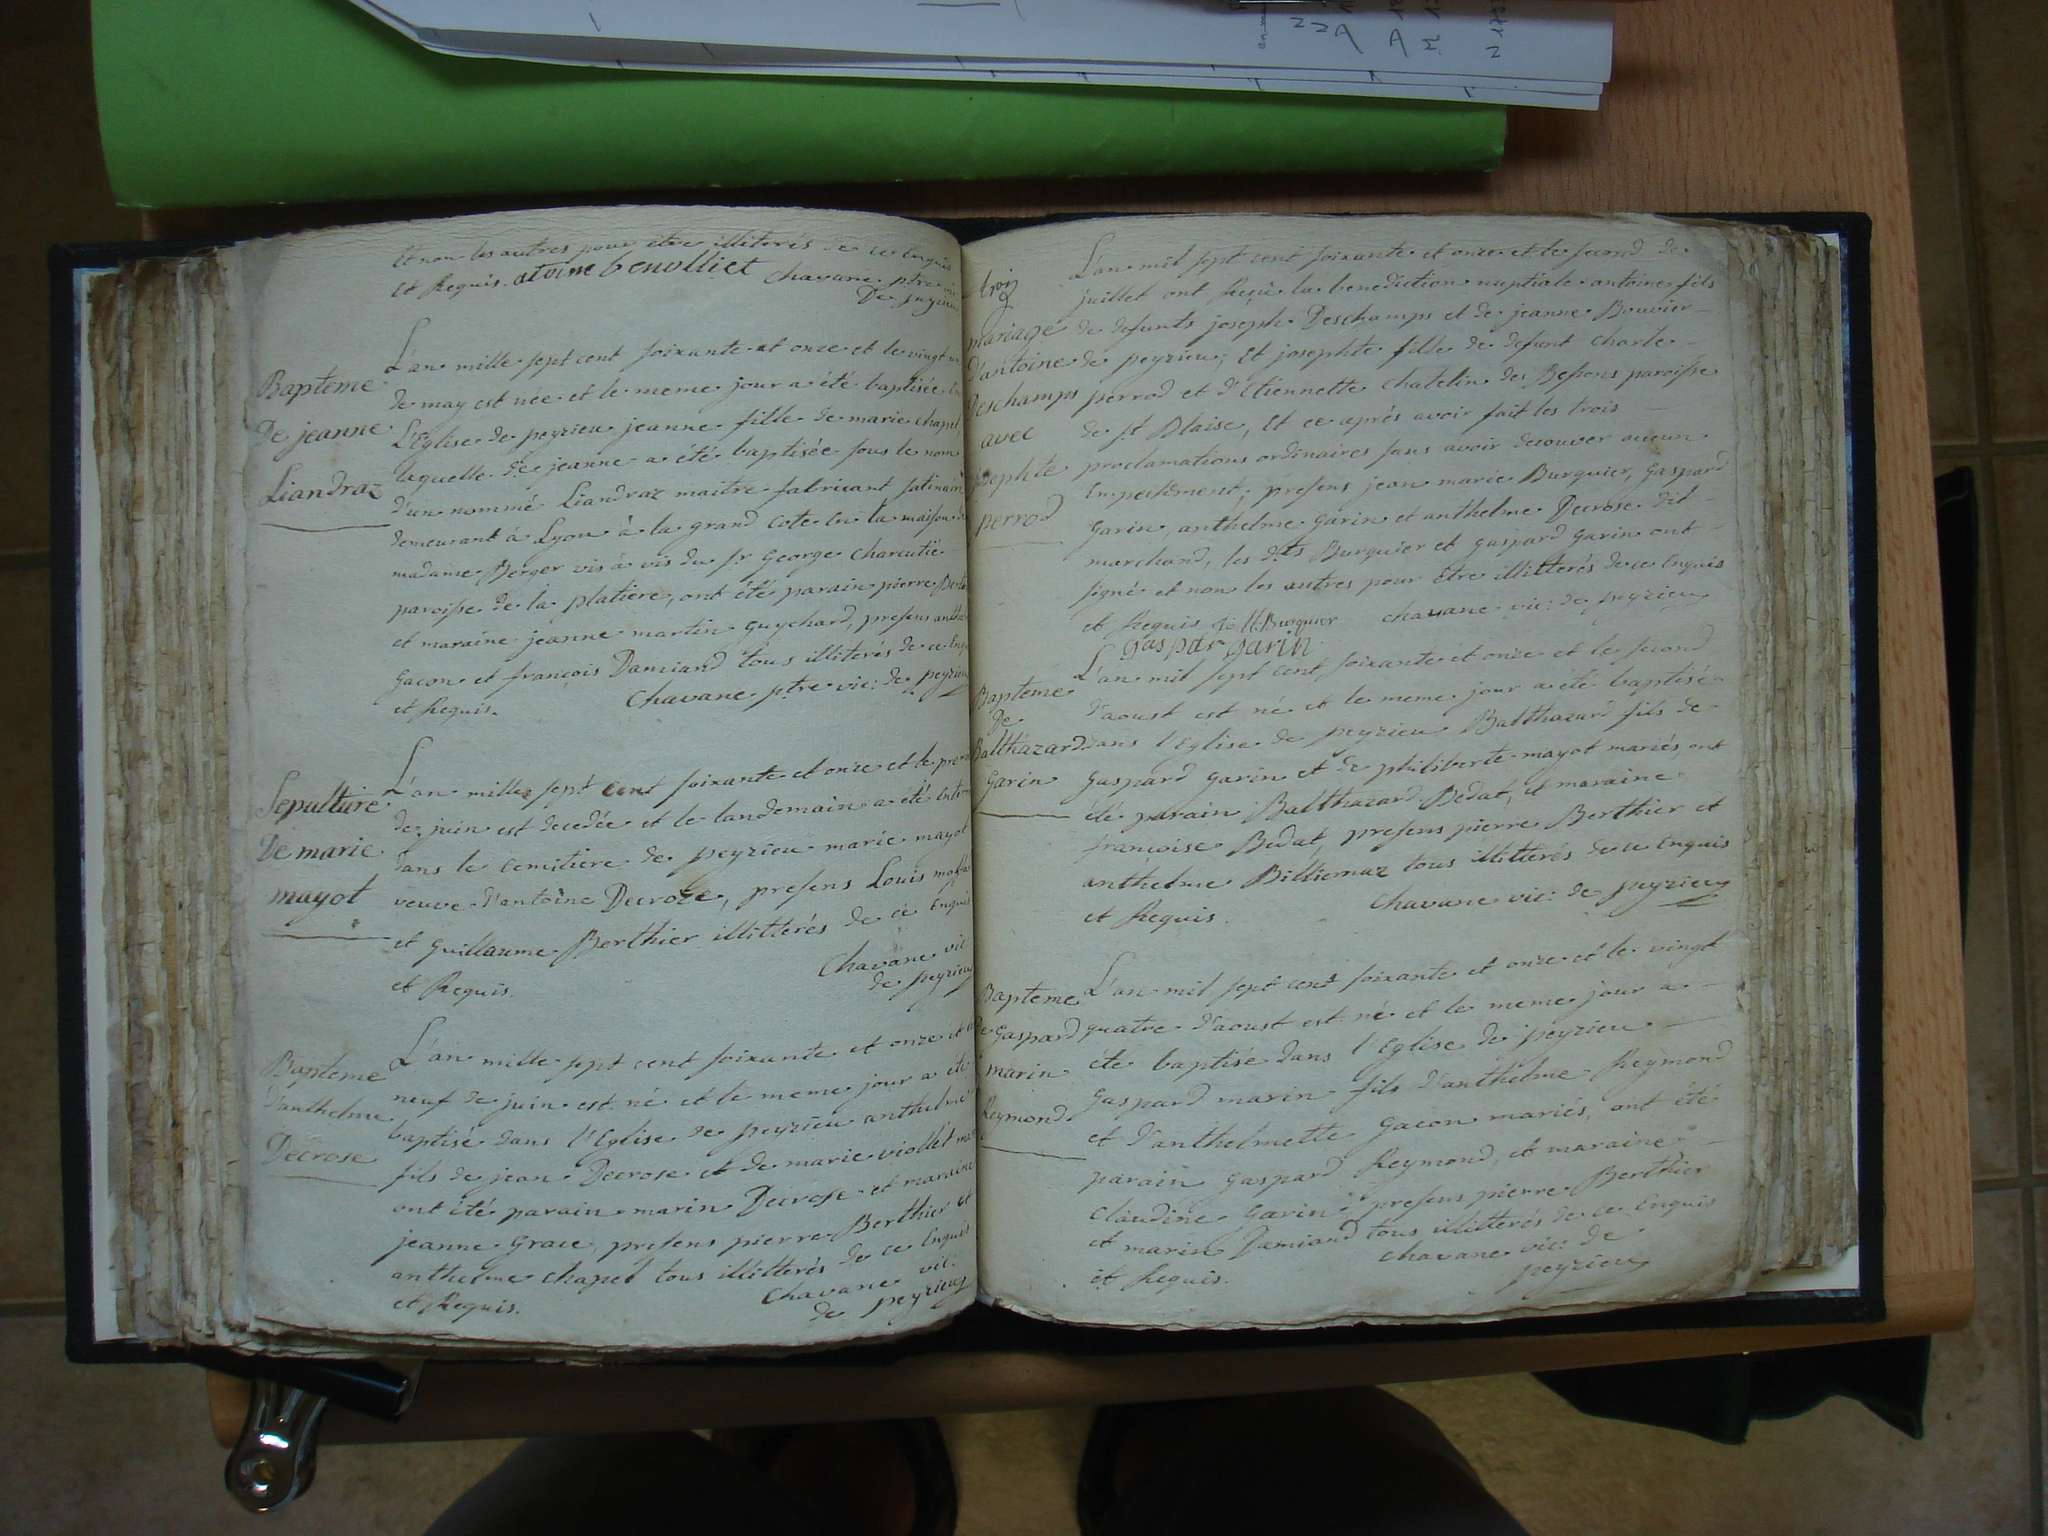 et non les autres pour être illiterés de ce enquis
et Requis. atoine benolliet chavane ptre vic
De peyrieu
Bapteme
De jeanne
Liandraz
L'an mille sept cent soixante et onze et le vingt
de may est née et le meme jour a été baptisée
L'Eglise de peyrieu jeanne fille de marie chapel
laquelle de jeanne a été baptisée sous le nom
d'un nommé Liandraz maitre fabricant satinaire
demeurant à Lyon à la grand cote en la maison de
madame Berger vis à vis du sr George charcutié
paroisse de la platiere, ont été parain pierre
et maraine jeanne martin guychard, presens
gacon et françois Damiand tous illiterés de ce
et Requis. chavane ptre vic: de peyrieu
Sepulture
De marie
mayot
L'an mille sept cent soixante et onze et le
de juin est decedée et le landemain a été
dans le cemitiere de peyrieu marie mayot
veuve d'antoine Decroze, presens Louis
et guillaume Berthier illittérés de ce enquis
et Requis. Chavane vic
de peyrieu
Bapteme
d'anthelme
Decrose
L'an mille sept cent soixante et onze et
neuf de juin est né et le meme jour a été
baptisé dans l'Eglise de peyrieu anthelme
fils de jean Decrose et de marie viollet
ont été parain marin Decrose et maraine
jeanne Grace, presens pierre Berthier et
anthelme chapel tous illittérés de ce enquis
et Requis. Chavane vic:
de peyrieu
mariage
d'antoine
Deschamps
avec
josephte
perrod
L'an mil sept cent soixante et onze et le second de
juillet ont Reçü la benediction nuptiale antoine fils
de defunts joseph Deschamps et de jeanne Bouvier
de peyrieu; et josephte fille de defunt charle
perrod et d'Etiennette chatelin des Bessons paroisse
de st Blaise, et ce après avoir fait les trois
proclamations ordinaires sans avoir decouver aucun
Empechement; presens jean marie Burquier, gaspard
garin, anthelme garin et anthelme Decrose dit
marchand, les dts Burquier et gaspard garin ont
signé et non les autres pour être illittérés de ce enquis
et Requis. Burquier chavane vic: de peyrieu
gaspar garin
Bapteme
de
Balthazard
garin
L'an mil sept cent soixante et onze et le second
d'aoust est né et le meme jour a été baptisé
dans l'Eglise de peyrieu Balthazard fils de
gaspard garin et de philiberte mayot mariés, ont
été parain Balthazard Bedat, et maraine
françoise Bedat, presens pierre Berthier et
anthelme Billiemaz tous illittérés de ce enquis
et Requis. Chavane vic: de peyrieu
Bapteme
De gaspard
marin
Reymond
L'an mil sept cent soixante et onze et le vingt
quatre d'aoust est né et le meme jour a
été baptisé dans l'Eglise de peyrieu
gaspard marin fils d'anthelme Reymond
et d'anthelmette gacon mariés, ont été
parain gaspard Reymond, et maraine
claudine garin presens pierre Berthier
et marin Damiand tous illittérés de ce enquis
et Requis. chavane vic: de
peyrieu